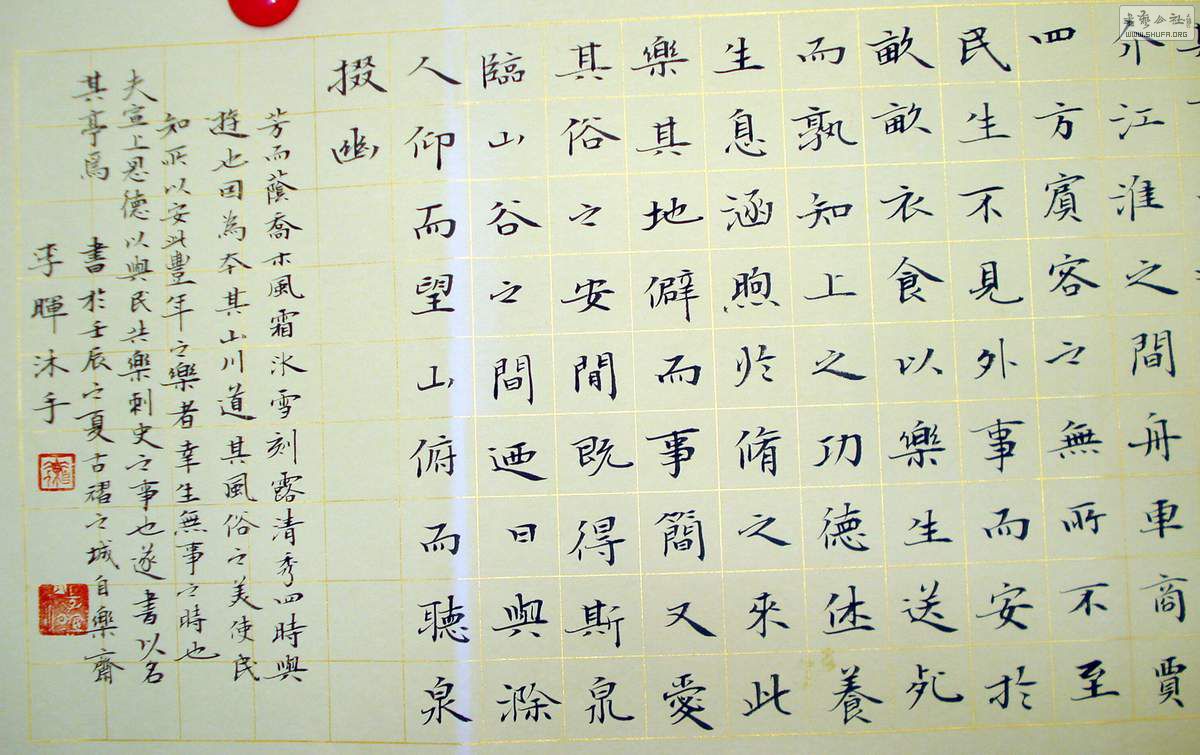 介江淮之間舟車商賈
四方賓客之無所不至
民生不見外事而安於
畝畝衣食以樂生送死
而孰知上之功德休養
生息涵煦於脩之來此
樂其地僻而事簡又愛
其俗之安閒既得斯泉
臨山谷之間迺日與滁
人仰而望山俯而聽泉
掇幽
芳而蔭喬木風霜冰雪刻露清秀四時與
遊也因為本其山川道其風俗之美使民
知所以安此豐年之樂者幸生無事之時也
夫宣上恩德以與民共樂刺史之事也遂書以名
其亭焉 書於壬辰之夏古之城自樂齋
李暉沐手
書藝公社
WWW.SHUFA.ORG